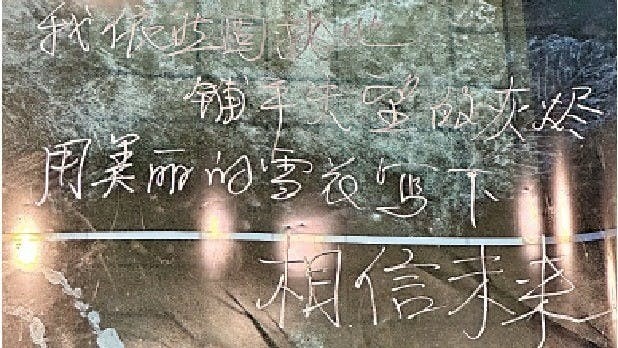 我依然固执地
铺平失望的灰烬
用美丽的雪花写下
相信未来